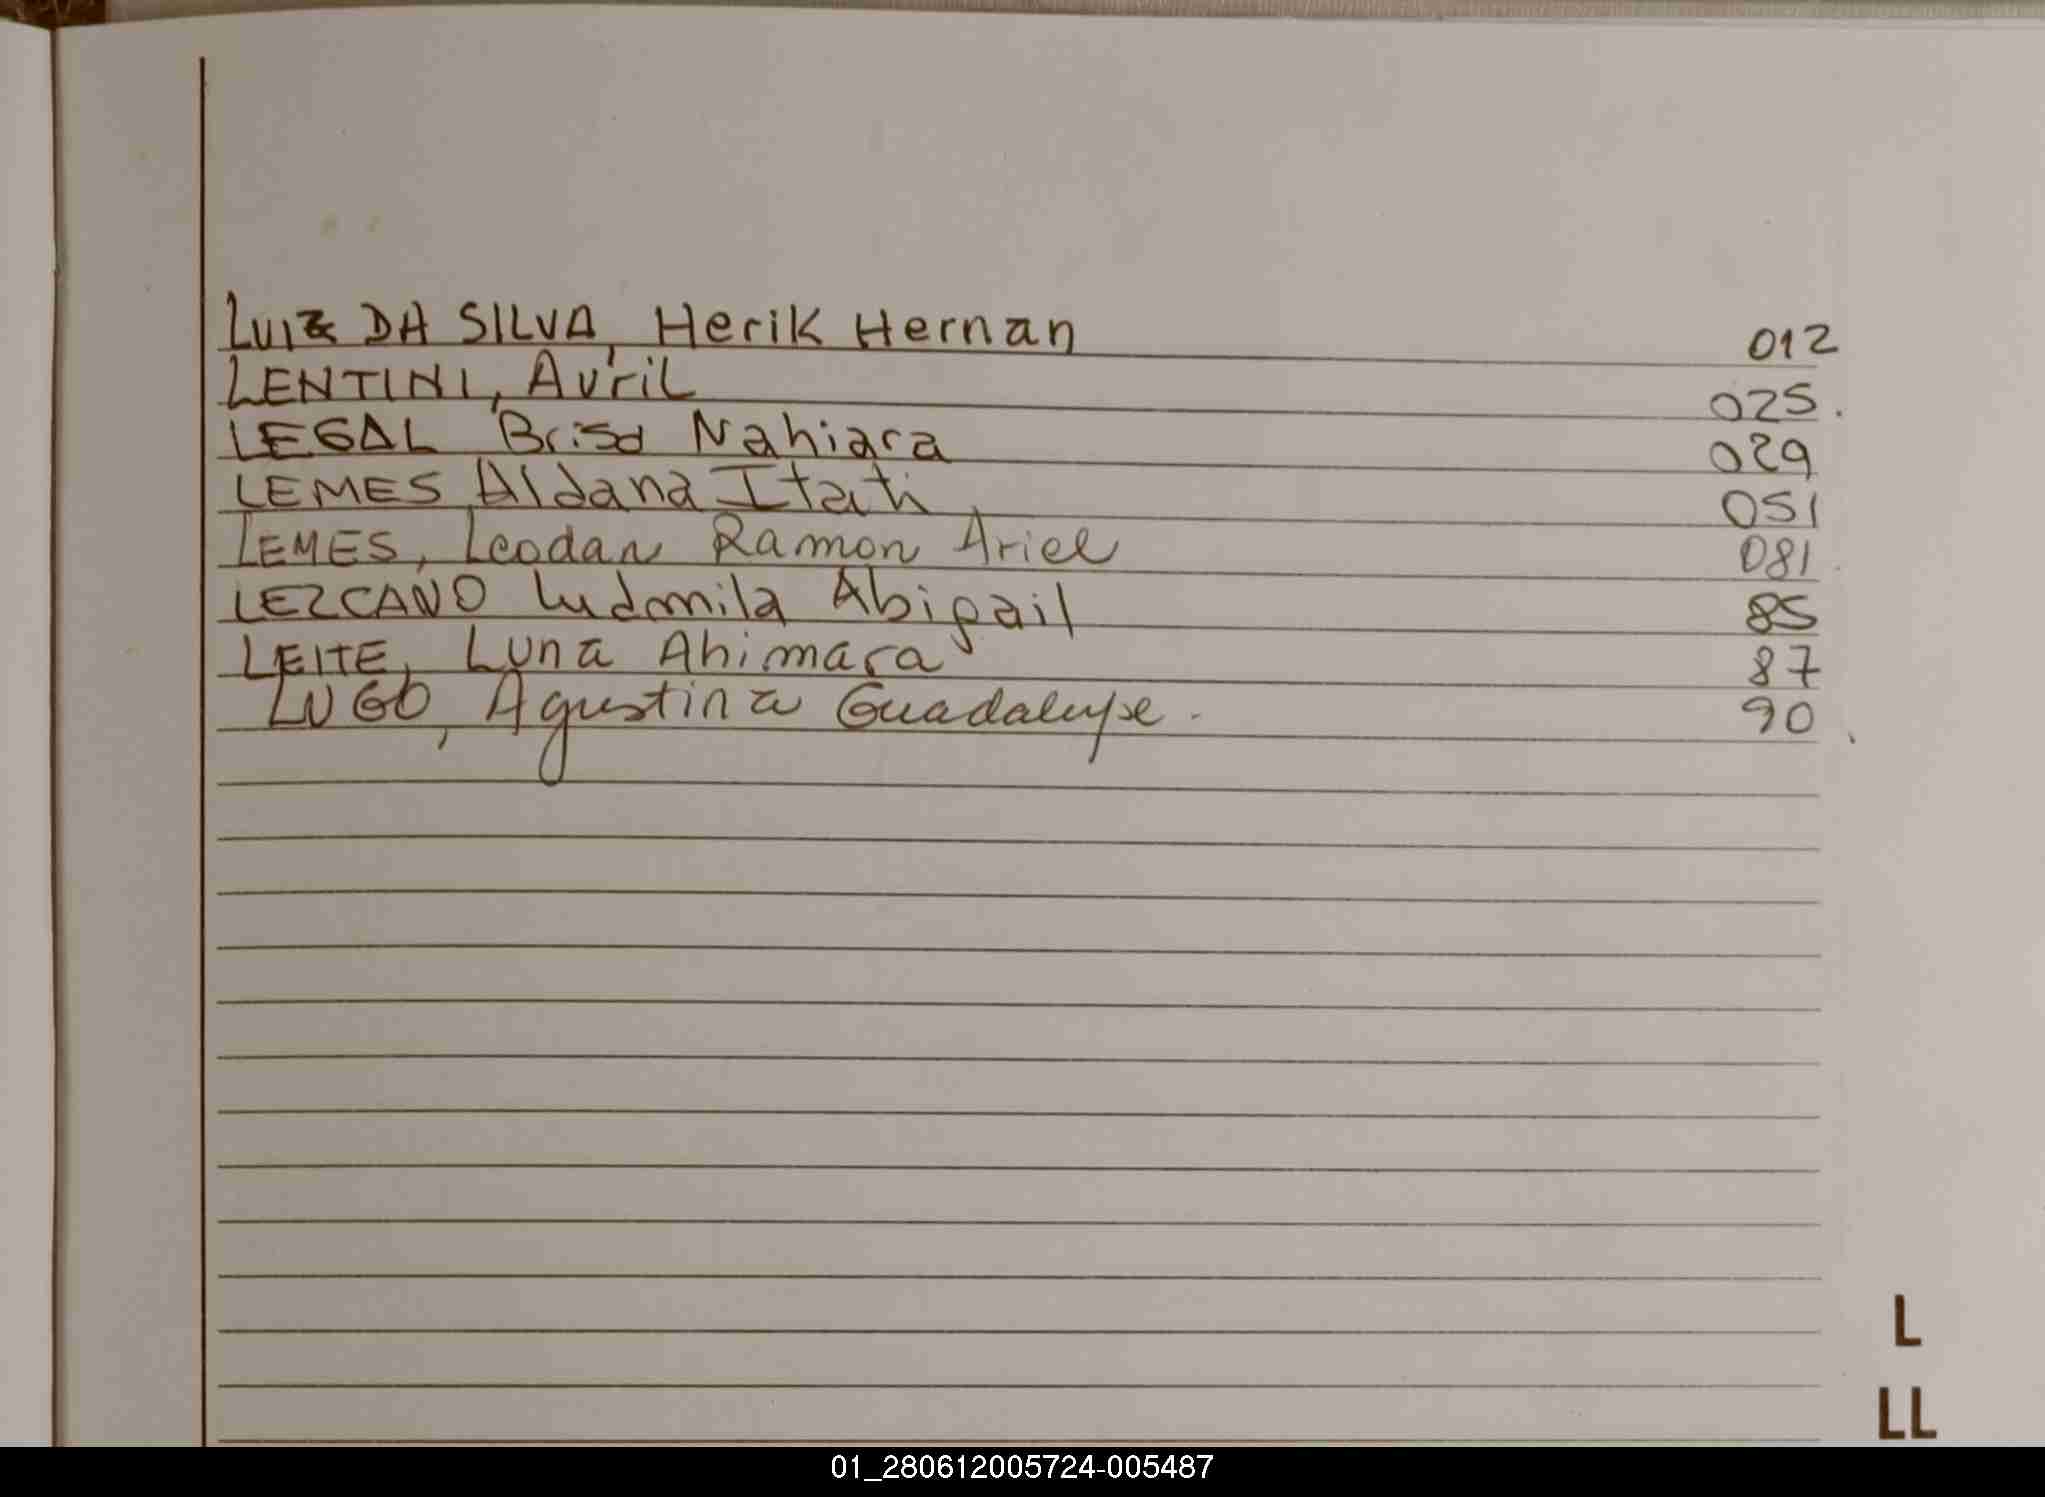 LUIZ DA SILVA, Herik Hernan 012
LENTINI, Avril 025.
LEGAL Brisa Nahiara 029
LEMES Aldana Itati 051
LEMES, Leodan Ramon Ariel 081
LEZCANO Ludmila Abigail 85
LEITE, Luna Ahimara 87
LUGO, Agustina Guadalupe. 90
L
LL
01_280612005724-005487